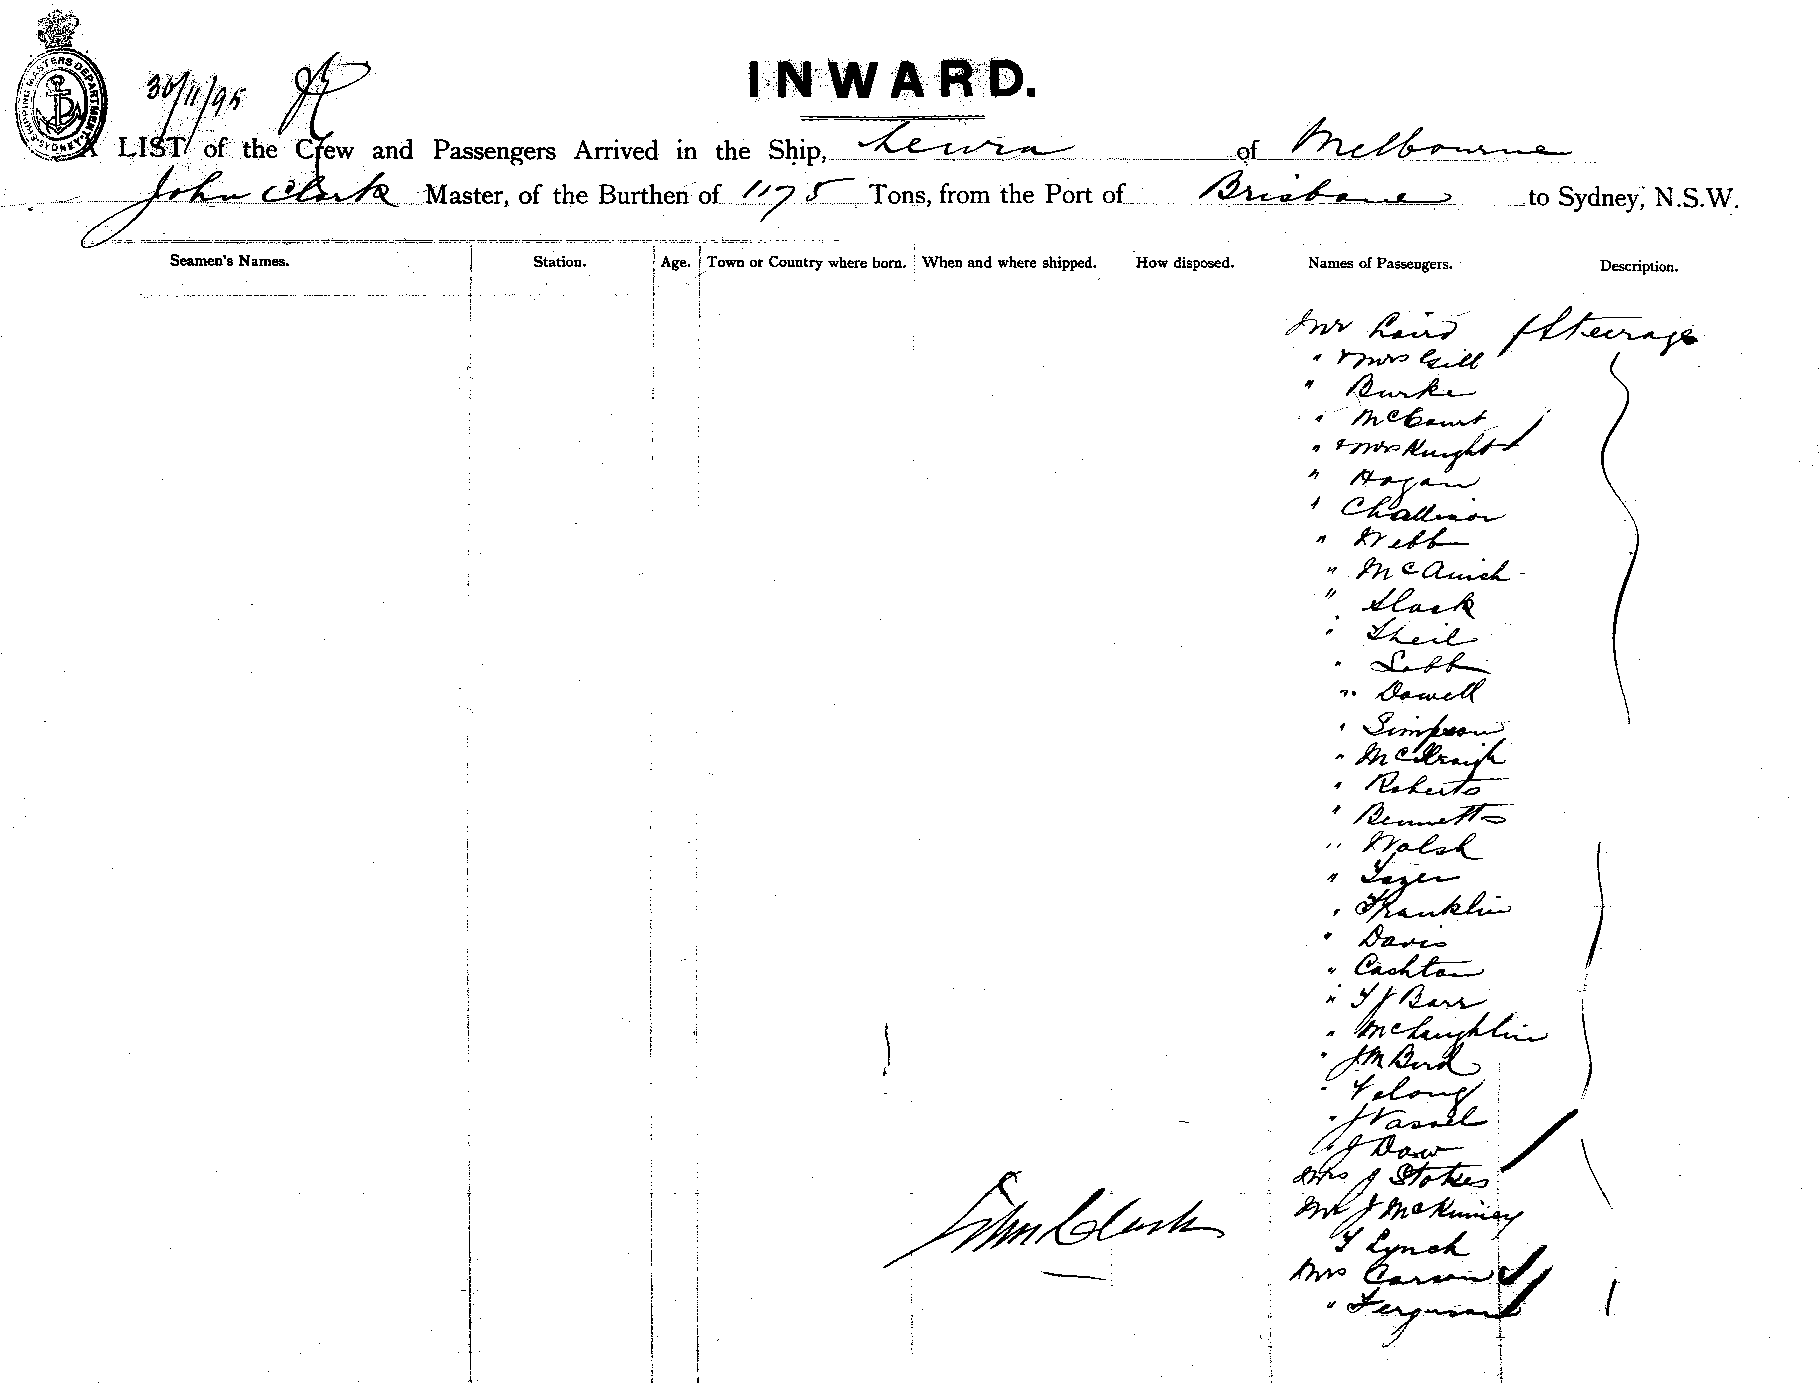 SHIPPING MASTERS DEPARTMENT
SYDNEY
30/11/95
INWARD.
A LIST of the Crew and Passengers Arrived in the Ship, Leura of Melbourne
John Clark Master, of the Burthen of 1175 Tons, from the Port of Brisbane to Sydney, N.S.W.
Seamen's Names. Station. Age. Town or Country where born. When and where shipped. How disposed. Names of Passengers. Description.
Mr Laird Steerage
" & Mrs Gill
" Burke
" McCourt
" & Mrs Knight
" Hogan
" Challinor
" Webb
" McAinsh
" Slack
" Sheil
" Lobb
" Dowell
" Simpson
" McIlraith
" Roberts
" Bennetts
" Walsh
" Tozer
" Franklin
" Davis
" Cashton
" T J Barr
" McLaughlin
" J M Bird
" F Long
" J Vassel
" J Daw
Mrs J Stokes
Mr J McKinney
T Lynch
Mrs Carson
" Ferguson
John Clark